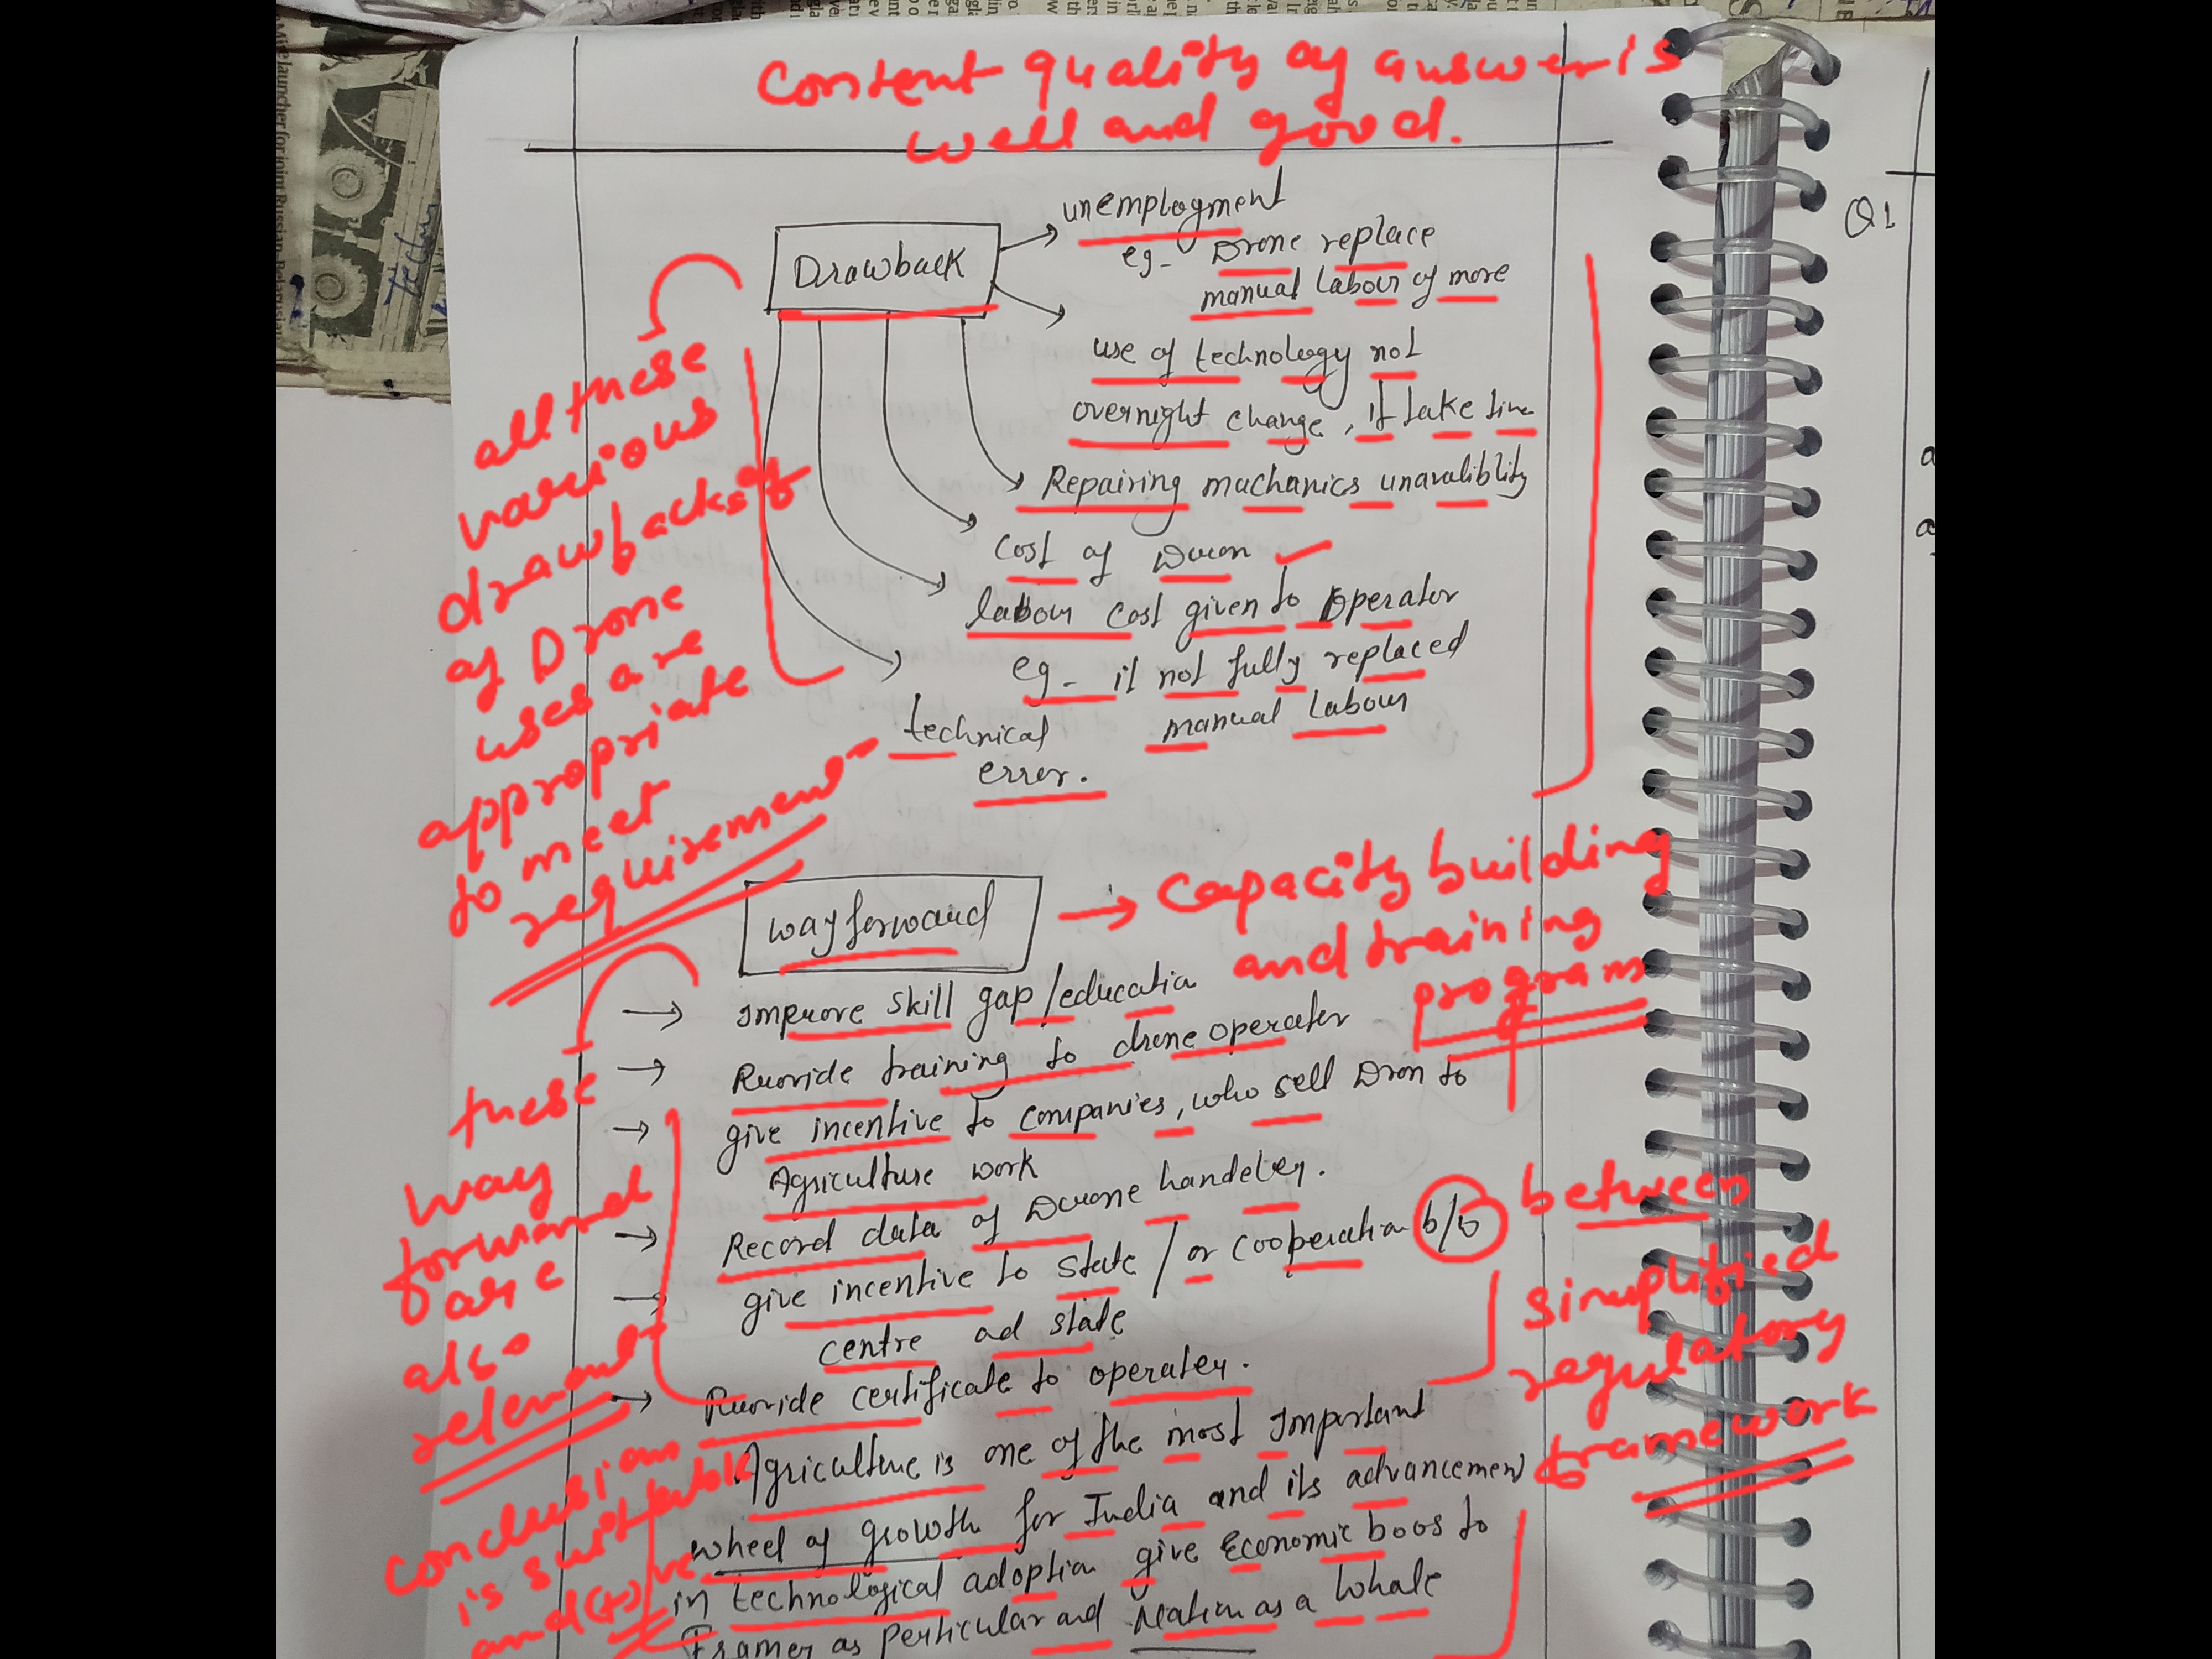 Content quality of answer is
well and good.
Drawback
unemployment
eg- Drone replace
manual labour of more
use of technology not
overnight change, it take time
Repairing machanics unavaliblity
Cost of Dron
labour cost given to operator
eg- it not fully replaced
manual labour
technical
error.
all these
various
drawbacks of
of Drone
uses are
appropriate
to meet
requirement
way forward
→ Capacity building
and training
program
→ Improve skill gap/education
→ Provide training to drone operater
→ give incentive to companies, who sell Dron to
Agriculture work
→ Record data of Drone handeler.
→ give incentive to state / or cooperation b/w
centre ad state
→ Provide certificate to operater.
between
simplified
regulatory
framework
these
way
forward
are
also
relevant
Agriculture is one of the most Important
wheel of growth for India and its advancement
in technological adoption give Economic boos to
Framer as perticular and Nation as a whole
conclusion
is suitable
and (+)ve
Q1